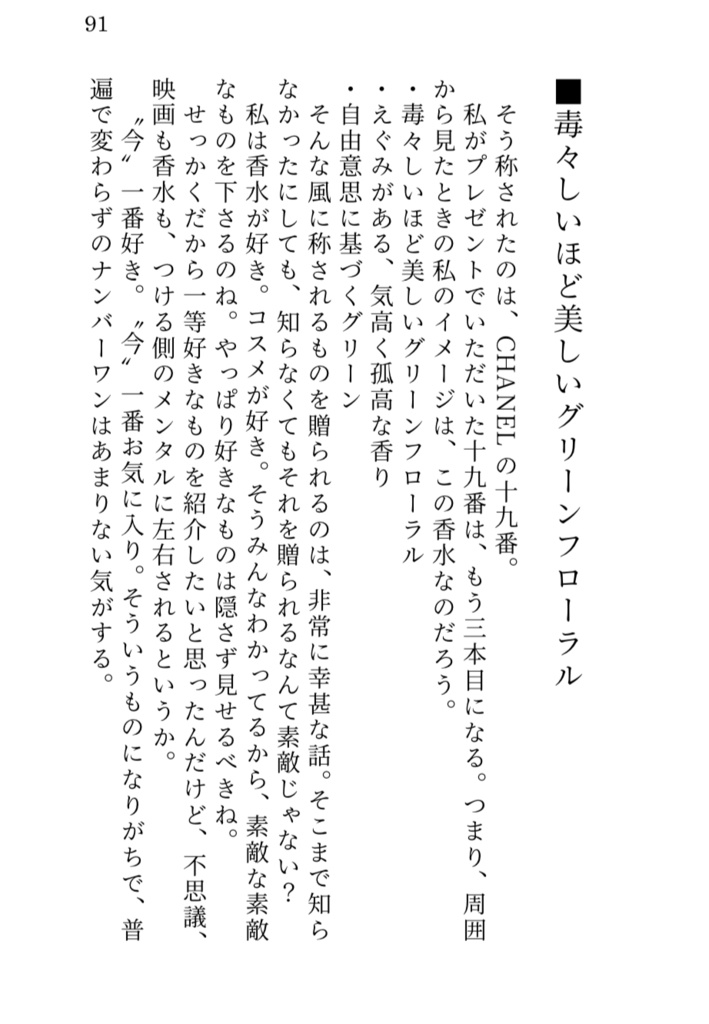 91
■毒々しいほど美しいグリーンフローラル
そう称されたのは、CHANELの十九番。
私がプレゼントでいただいた十九番は、もう三本目になる。つまり、周囲
から見たときの私のイメージは、この香水なのだろう。
・毒々しいほど美しいグリーンフローラル
・えぐみがある、気高く孤高な香り
・自由意思に基づくグリーン
そんな風に称されるものを贈られるのは、非常に幸甚な話。そこまで知ら
なかったにしても、知らなくてもそれを贈られるなんて素敵じゃない?
私は香水が好き。コスメが好き。そうみんなわかってるから、素敵な素敵
なものを下さるのね。やっぱり好きなものは隠さず見せるべきね。
せっかくだから一等好きなものを紹介したいと思ったんだけど、不思議、
映画も香水も、つける側のメンタルに左右されるというか。
〝今〟一番好き。〝今〟一番お気に入り。そういうものになりがちで、普
遍で変わらずのナンバーワンはあまりない気がする。